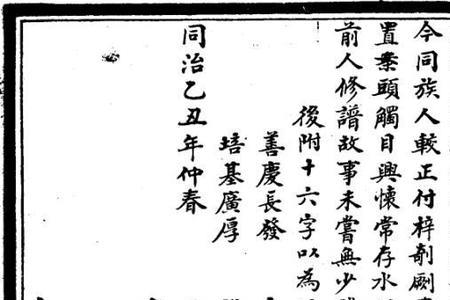 今同族人較正付梓剞劂
置案頭觸目興懷常存水
前人修譜故事未嘗無少
後附十六字以為
善慶長發
培基廣厚
同治乙丑年仲春